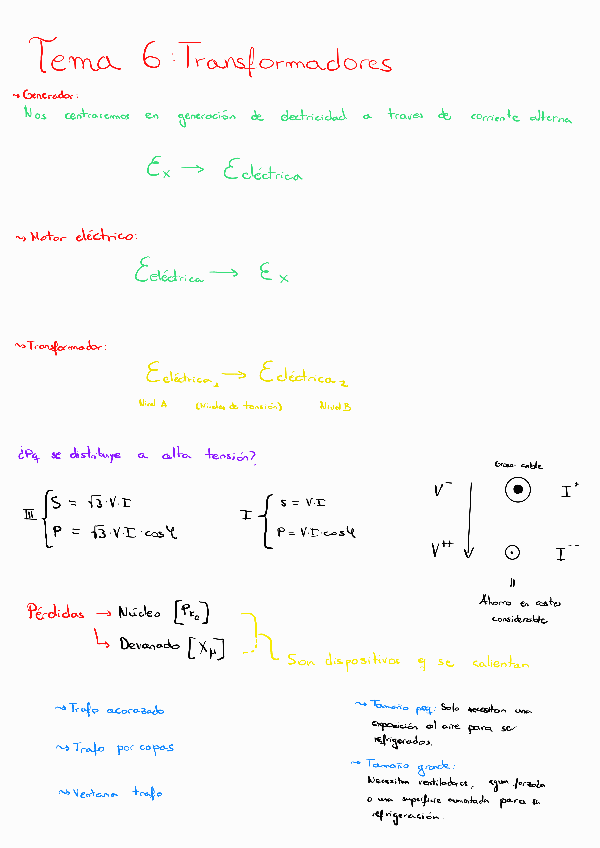 Tema 6: Transformadores
→ Generador:
Nos centraremos en generación de electricidad a traves de corriente alterna
Ex → Eeléctrica
→ Motor eléctrico:
Eeléctrica → Ex
→ Transformador:
Eeléctrica1 → Eeléctrica2
Nivel A (Niveles de tensión) Nivel B
¿Pq se distribuye a alta tensión?
III { S = √3·V·I
P = √3·V·I·cosφ
I { S = V·I
P = V·I·cosφ
Grosor cable
V⁻ I⁺
V⁺⁺ I⁻⁻
=
Ahorro en costes
considerable
Pérdidas → Núcleo [PFe]
↳ Devanado [Xμ]
Son dispositivos q se calientan
→ Trafo acorazado
→ Trafo por capas
→ Ventana trafo
→ Tamaño peq: Solo necesitan una
exposición al aire para ser
refrigerados.
→ Tamaño grande:
Necesitan ventiladores, agua forzada
o una superficie aumentada para su
refrigeración.